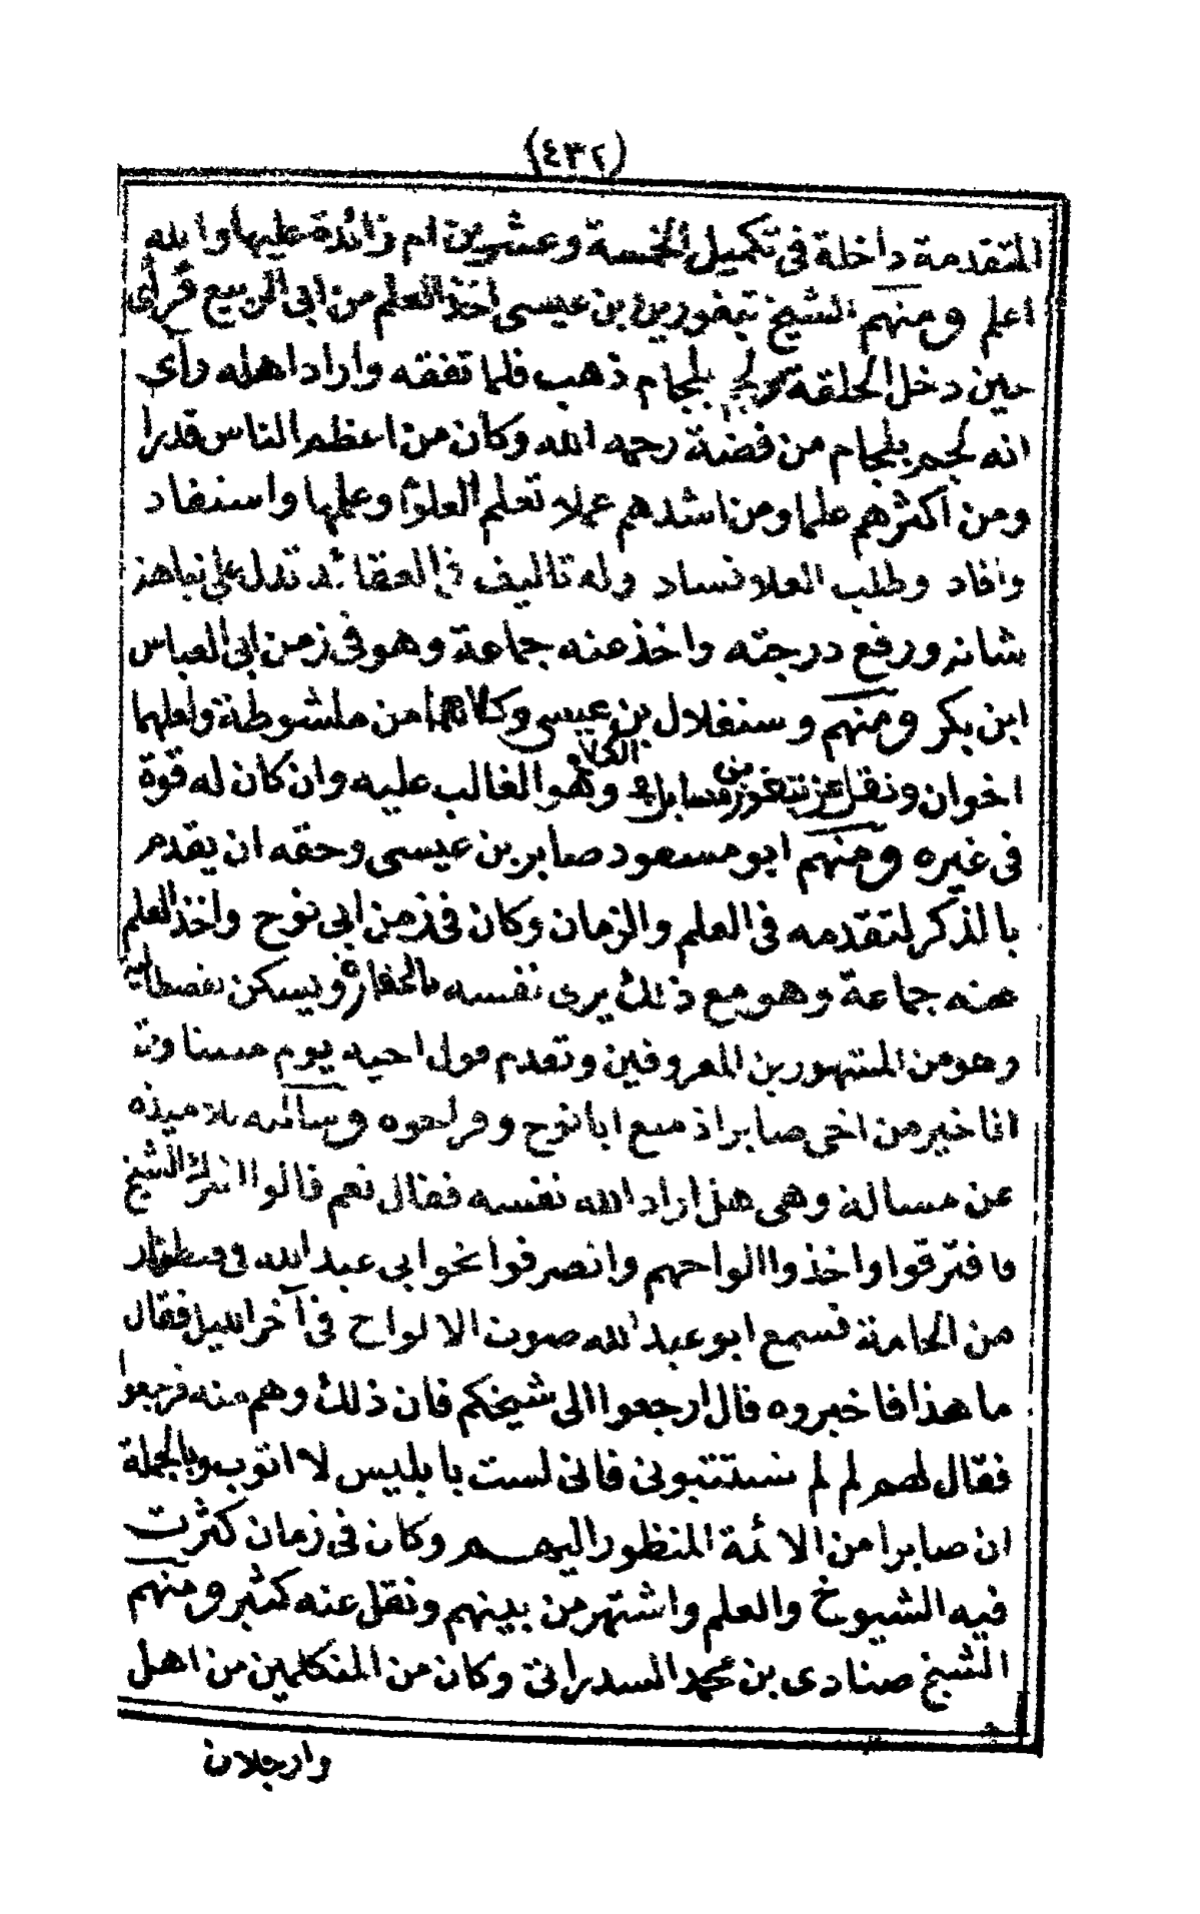 (٤٣٢)
المتقدمة داخلة فى تكميل الخمسة وعشرين ام زائدة عليها والله
اعلم ومنهم الشيخ تبغورين بن عيسى اخذ العلم من ابى الربيع فرأى
حين دخل الحلقة لجم بلجام ذهب فلما تفقه واراد اهله رآى
انه لجم بلجام من فضة رحمه الله وكان من اعظم الناس قدرا
ومن اكثرهم علما ومن اشدهم عملا تعلم العلوم وعلمها واستفاد
وافاد وطلب العلا فساد وله تاليف فى العقائد تدل على نباهة
شانه ورفع درجته واخذ عنه جماعة وهو فى زمن ابى العباس
ابن بكر ومنهم وسنفلال بن عيسى وكلاهما من ملشوطة ولعلهما
اخوان ونقل عن تبغورين مسايل الكلام وهو الغالب عليه وان كان له قوة
فى غيره ومنهم ابو مسعود صابر بن عيسى وحقه ان يقدم
بالذكر لتقدمه فى العلم والزمان وكان فى زمن ابى نوح واخذ العلم
عنه جماعة وهو مع ذلك يرى نفسه بالحقارة ويسكن
وهو من المشهورين المعروفين وتقدم قول اخيه يوم
انا خير من اخى صابر اذ منع ابا نوح وسألته تلاميذه
عن مسالة وهى هل اراد الله نفسه فقال نعم فالوا الشيخ
فافترقوا واخذوا الواحهم وانصرفوا نحو ابى عبد الله
من الحامة فسمع ابو عبد الله صوت الالواح فى آخر الليل فقال
ما هذا فاخبروه قال ارجعوا الى شيخكم فان ذلك وهم منه فرجعوا
فقال لهم لم لم تستتبونى فانى لست بابليس لا اتوب وبالجملة
ان صابرا من الائمة المنظور اليهم وكان فى زمان كثرت
فيه الشيوخ والعلم واشتهر من بينهم ونقل عنه كثير ومنهم
الشيخ صنادى بن محمد السدراتى وكان من المتكلمين من اهل
وارجلان